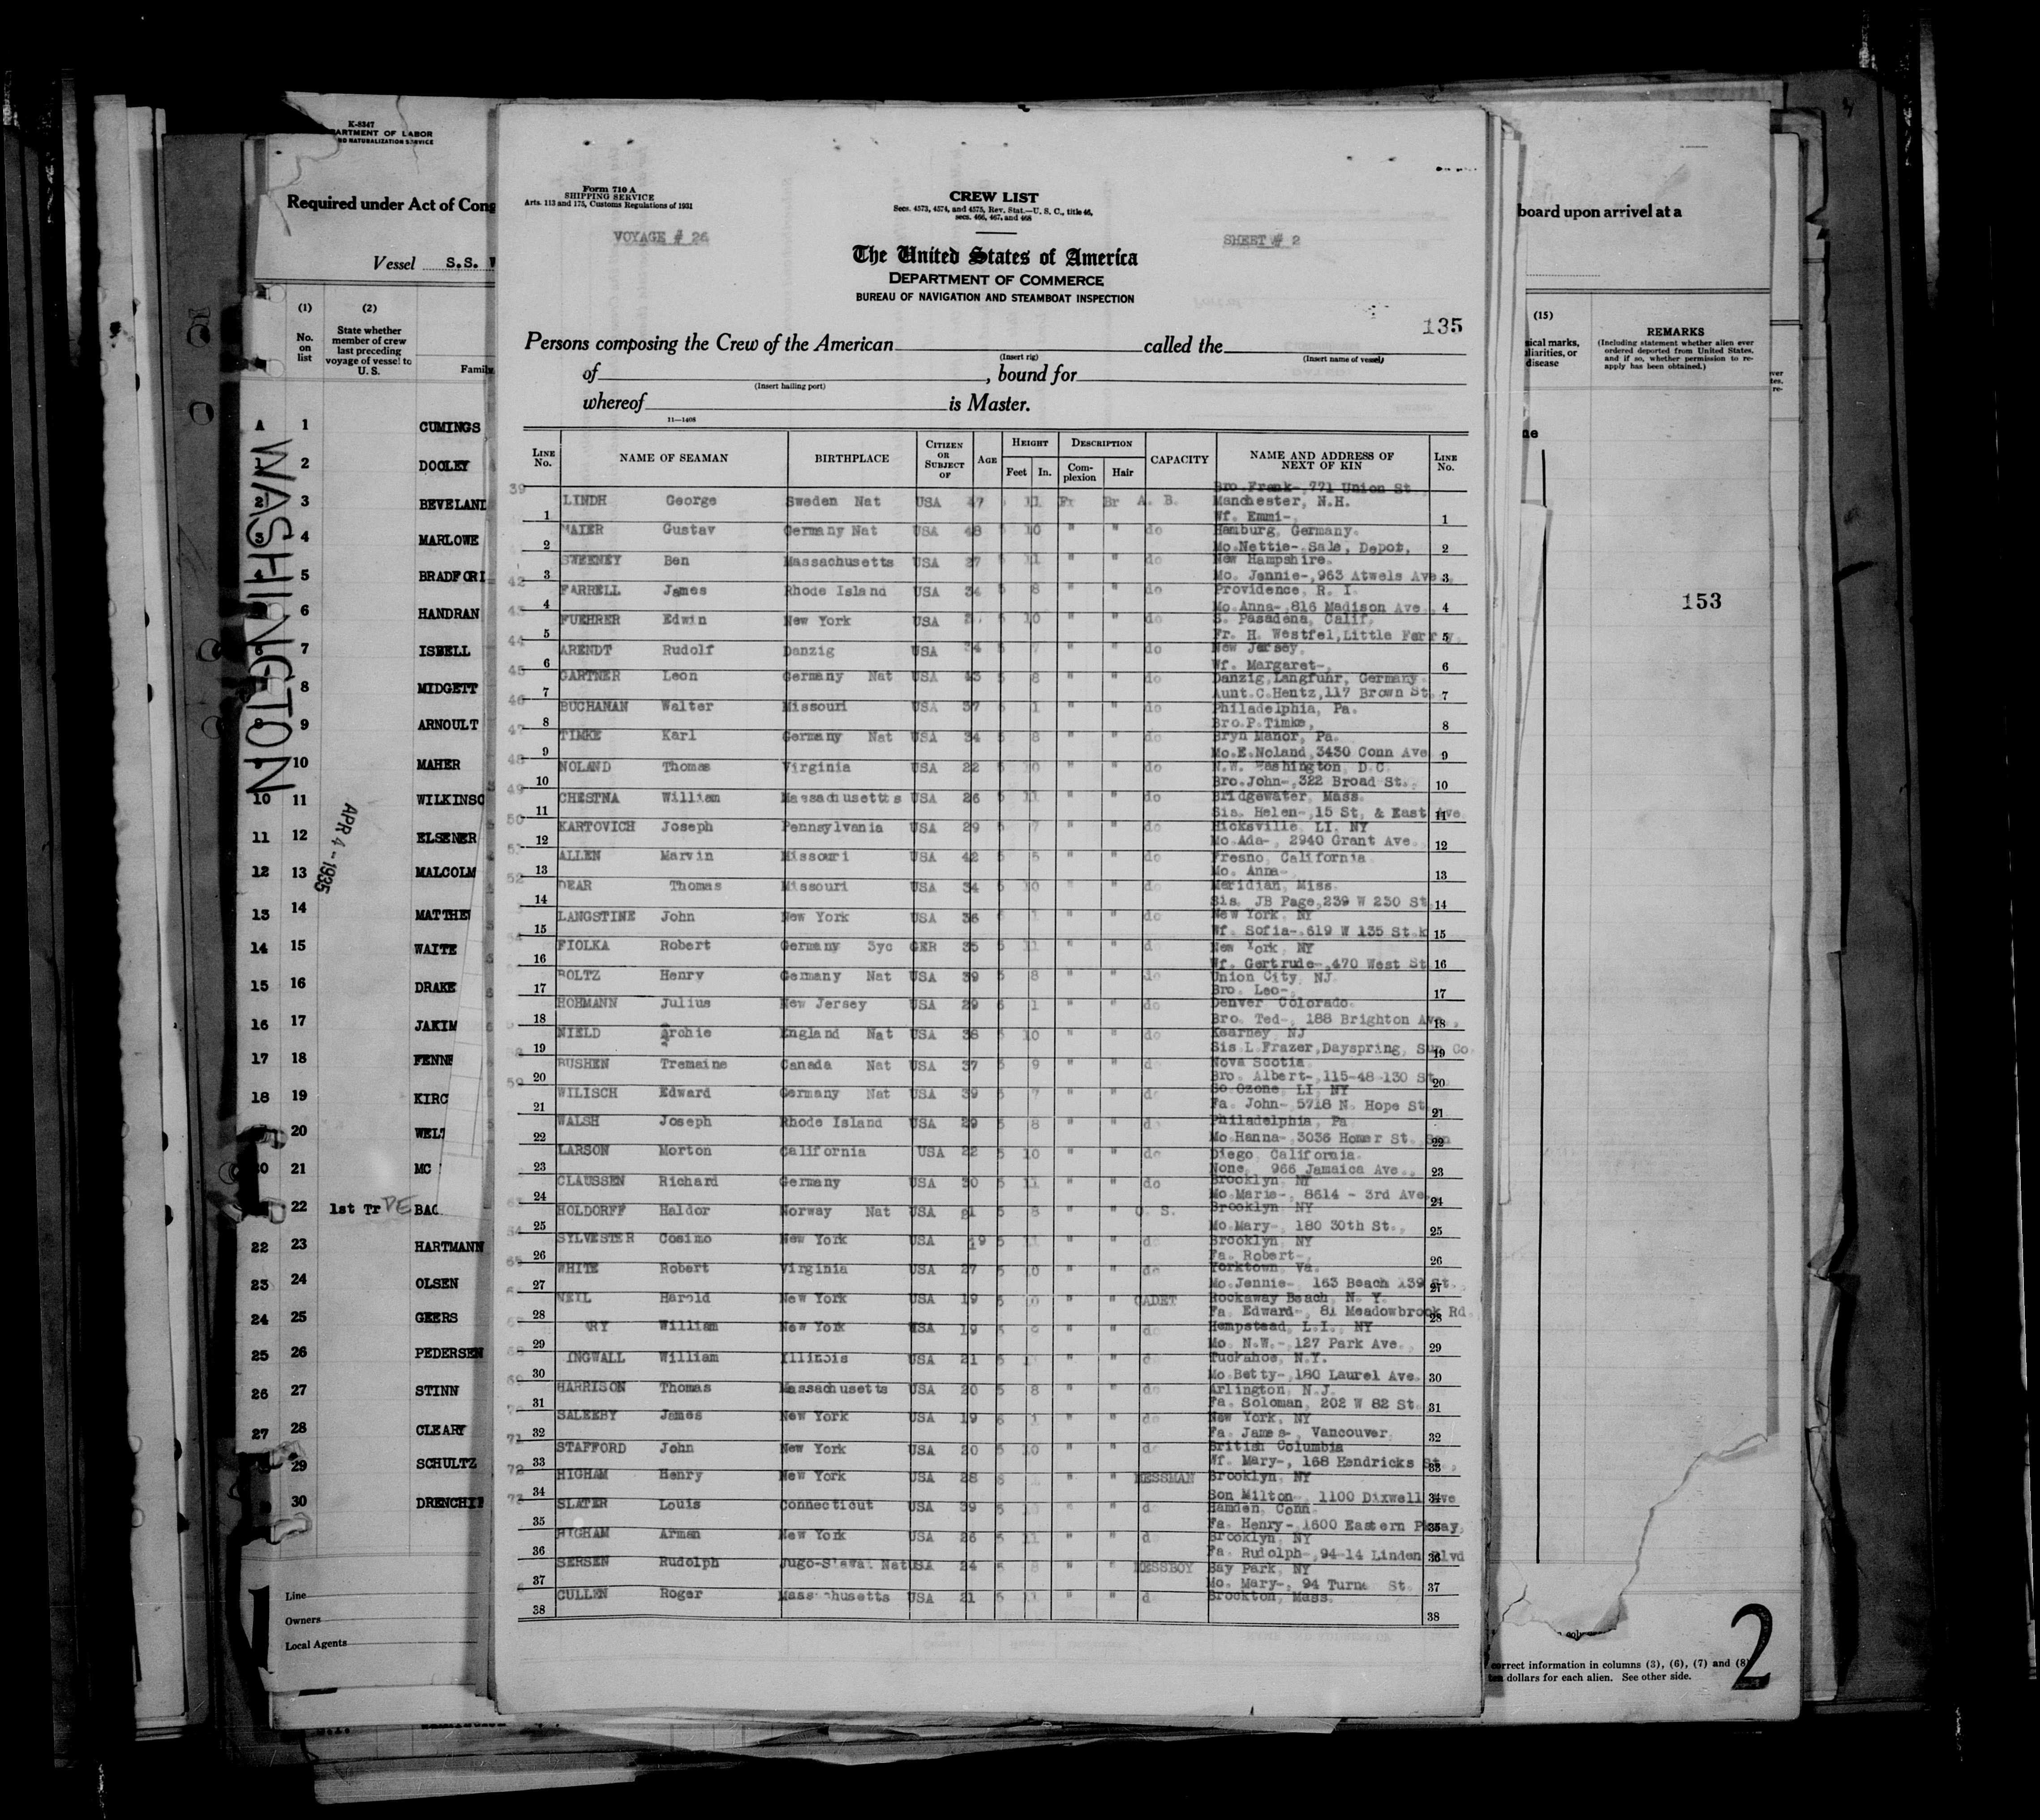 K-8347
ARTMENT OF LABOR
ND NATURALIZATION SERVICE
Required under Act of Cong
Vessel S.S. W
(1)
(2)
No. on list
State whether member of crew last preceding voyage of vessel to U. S.
Family
WASHINGTON
APR 4 - 1935
A 1 CUMINGS
1 2 DOOLEY
2 3 BEVELAND
3 4 MARLOWE
4 5 BRADFORD
6 HANDRAN
7 ISBELL
8 MIDGETT
8 9 ARNOULT
10 MAHER
10 11 WILKINSO
11 12 ELSENER
12 13 MALCOLM
13 14 MATTHE
14 15 WAITE
15 16 DRAKE
16 17 JAKIM
17 18 FENN
18 19 KIRC
20 WEL
21 MC
22 1st Tr DE BAC
22 23 HARTMANN
23 24 OLSEN
24 25 GEERS
25 26 PEDERSEN
26 27 STINN
27 28 CLEARY
29 SCHULTZ
30 DRENCHI
Line
Owners
Local Agents
Form 710 A
SHIPPING SERVICE
Arts. 113 and 175, Customs Regulations of 1931
CREW LIST
Secs. 4573, 4574, and 4575, Rev. Stat.—U. S. C., title 46,
secs. 466, 467, and 468
VOYAGE # 26
SHEET # 2
The United States of America
DEPARTMENT OF COMMERCE
BUREAU OF NAVIGATION AND STEAMBOAT INSPECTION
135
Persons composing the Crew of the American called the
(Insert rig) (Insert name of vessel)
of , bound for
(Insert hailing port)
whereof is Master.
11—1408
LINE No. NAME OF SEAMAN BIRTHPLACE CITIZEN OR SUBJECT OF AGE HEIGHT Feet In. DESCRIPTION Complexion Hair CAPACITY NAME AND ADDRESS OF NEXT OF KIN LINE No.
39 Bro Frank-, 771 Union St
LINDH George Sweden Nat USA 47 11 Fr Br A. B. Manchester, N.H.
1 Wf. Emmi-, 1
MAIER Gustav Germany Nat USA 48 5 10 " " do Hamburg, Germany.
2 Mo.Nettie- Sale, Depot, 2
SWEENEY Ben Massachusetts USA 27 5 11 " " do New Hampshire.
42 3 Mo. Jennie-,963 Atwels Ave 3
FARRELL James Rhode Island USA 34 5 8 " " do Providence, R. I.
43 4 Mo.Anna-,816 Madison Ave. 4
FUEHRER Edwin New York USA 5 10 " " do S. Pasadena, Calif.
44 5 Fr. H. Westfel,Little Ferry 5
ARENDT Rudolf Danzig USA 34 5 7 " " do New Jersey.
45 6 Wf. Margaret-, 6
GARTNER Leon Germany Nat USA 43 5 8 " " do Danzig,Langfuhr, Germany
46 7 Aunt.C.Hentz,117 Brown St. 7
BUCHANAN Walter Missouri USA 37 6 1 " " do Philadelphia, Pa.
47 8 Bro.P.Timke, 8
TIMKE Karl Germany Nat USA 34 5 8 " " do Bryn Manor, Pa.
48 9 Mo.E.Noland,3430 Conn Ave 9
NOLAND Thomas Virginia USA 22 5 10 " " do N.W. Washington D.C.
49 10 Bro.John-,322 Broad St., 10
CHESTNA William Massachusettts USA 26 5 11 " " do Bridgewater, Mass.
50 11 Sis. Helen-,15 St. & East Ave. 11
KARTOVICH Joseph Pennsylvania USA 29 5 7 " " do Hicksville, LI. NY
51 12 Mo.Ada-, 2940 Grant Ave. 12
ALLEN Marvin Missouri USA 42 5 5 " " do Fresno, California
52 13 Mo. Anna- 13
DEAR Thomas Missouri USA 34 5 10 " " do Meridian, Miss.
14 Sis. JB Page,239 W 230 St. 14
LANGSTINE John New York USA 36 6 1 " " do New York, NY
15 Wf. Sofia-.619 W 135 St. 15
FIOLKA Robert Germany 3yc GER 35 5 11 " " do New York, NY
16 Wf. Gertrude-,470 West St 16
BOLTZ Henry Germany Nat USA 39 5 8 " " do Union City, NJ.
17 Bro. Leo-, 17
HOHMANN Julius New Jersey USA 29 6 1 " " do Denver Colorado.
18 Bro. Ted-, 188 Brighton Ave., 18
NIELD Archie England Nat USA 38 5 10 " " do Kearney, NJ
19 Sis.L.Frazer,Dayspring, Sun Co. 19
RUSHEN Tremaine Canada Nat USA 37 5 9 " " do Nova Scotia
59 20 Bro. Albert-,115-48-130 St 20
WILISCH Edward Germany Nat USA 39 5 7 " " do So.Ozone, LI, NY
21 Fa. John- 5718 N. Hope St 21
WALSH Joseph Rhode Island USA 29 5 8 " " do Philadelphia, Pa
22 Mo.Hanna-,3036 Homer St. San 22
LARSON Morton California USA 22 5 10 " " do Diego, California.
23 None, 966 Jamaica Ave., 23
CLAUSSEN Richard Germany USA 30 5 11 " " do Brooklyn, NY
24 Mo.Marie-, 8614 - 3rd Ave. 24
HOLDORFF Haldor Norway Nat USA 21 5 8 " " O. S. Brooklyn NY
64 25 Mo.Mary-, 180 30th St., 25
SYLVESTER Cosimo New York USA 19 5 11 " " do Brooklyn, NY
65 26 Fa. Robert-, 26
WHITE Robert Virginia USA 27 5 10 " " do Yorktown, Va.
27 Mo.Jennie-, 163 Beach 139 St., 27
NEIL Harold New York USA 19 5 " " CADET Rockaway Beach, N. Y.
28 Fa. Edward-, 81 Meadowbrook Rd. 28
RY William New York USA 19 5 " " do Hempstead, L.I., NY
29 Mo. N.W.-,127 Park Ave. 29
INGWALL William Illinois USA 21 5 " " do Tuckahoe, N.Y.
69 30 Mo.Betty-,180 Laurel Ave. 30
HARRISON Thomas Massachusetts USA 20 5 8 " " do Arlington, N.J.
31 Fa. Soloman, 202 W 82 St. 31
SALEEBY James New York USA 19 6 1 " " do New York, NY
71 32 Fa. James-, Vancouver, 32
STAFFORD John New York USA 20 5 10 " " do British Columbia
72 33 Wf. Mary-, 168 Hendricks St., 33
HIGHAM Henry New York USA 28 " " MESSMAN Brooklyn, NY
73 34 Son Milton-, 1100 Dixwell Ave 34
SLATER Louis Connecticut USA 39 5 " " do Hamden, Conn.
35 Fa. Henry-,1600 Eastern Pkway, 35
HIGHAM Arman New York USA 26 5 11 " " do Brooklyn, NY
36 Fa. Rudolph-,94-14 Linden Blvd 36
SERSEN Rudolph Jugo-Slavai Nat USA 24 5 8 " " MESSBOY Bay Park, NY
37 Mo. Mary-, 94 Turne St. 37
CULLEN Roger Mass husetts USA 21 5 11 " " do Brockton, Mass.
38 38
board upon arrival at a
(15)
sical marks,
liarities, or
disease
REMARKS
(Including statement whether alien ever
ordered deported from United States,
and if so, whether permission to re-
apply has been obtained.)
ver
tes.
re-
ne
153
correct information in columns (3), (6), (7) and (8)
ten dollars for each alien. See other side.
2